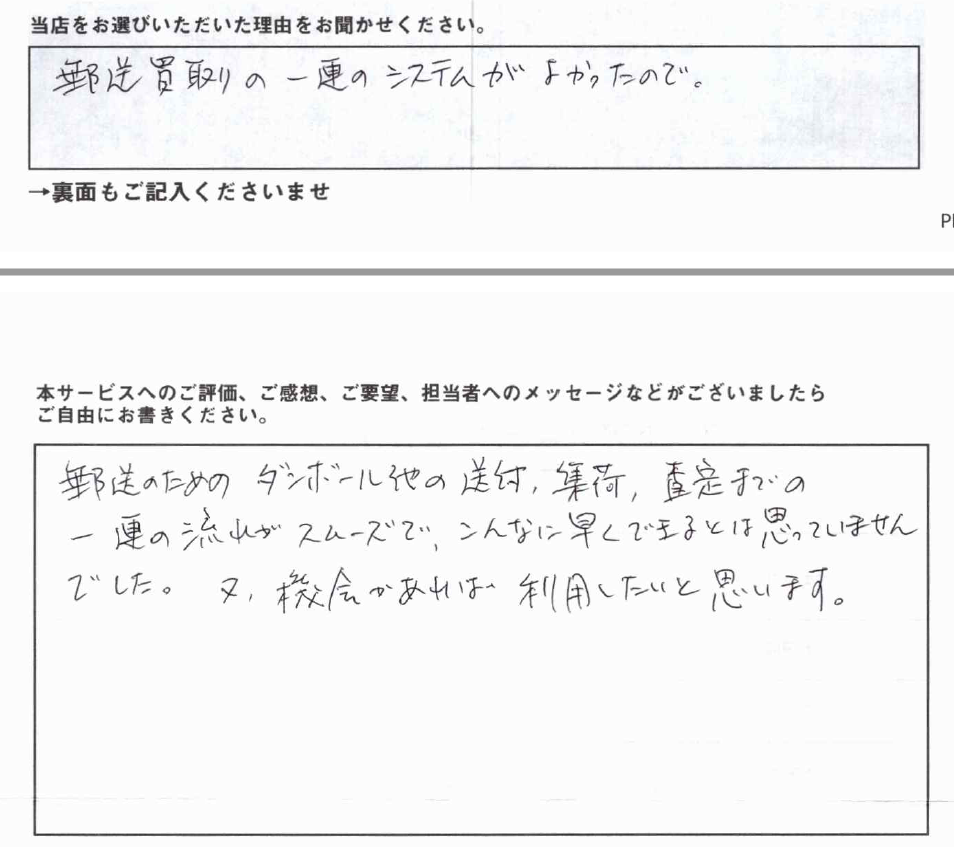 当店をお選びいただいた理由をお聞かせください。
郵送買取りの一連のシステムがよかったので。
→裏面もご記入くださいませ
本サービスへのご評価、ご感想、ご要望、担当者へのメッセージなどがございましたら
ご自由にお書きください。
郵送のための ダンボール他の送付, 集荷, 査定までの
一連の流れがスムーズで, こんなに早くできるとは思っていません
でした。 又, 機会があれば 利用したいと思います。